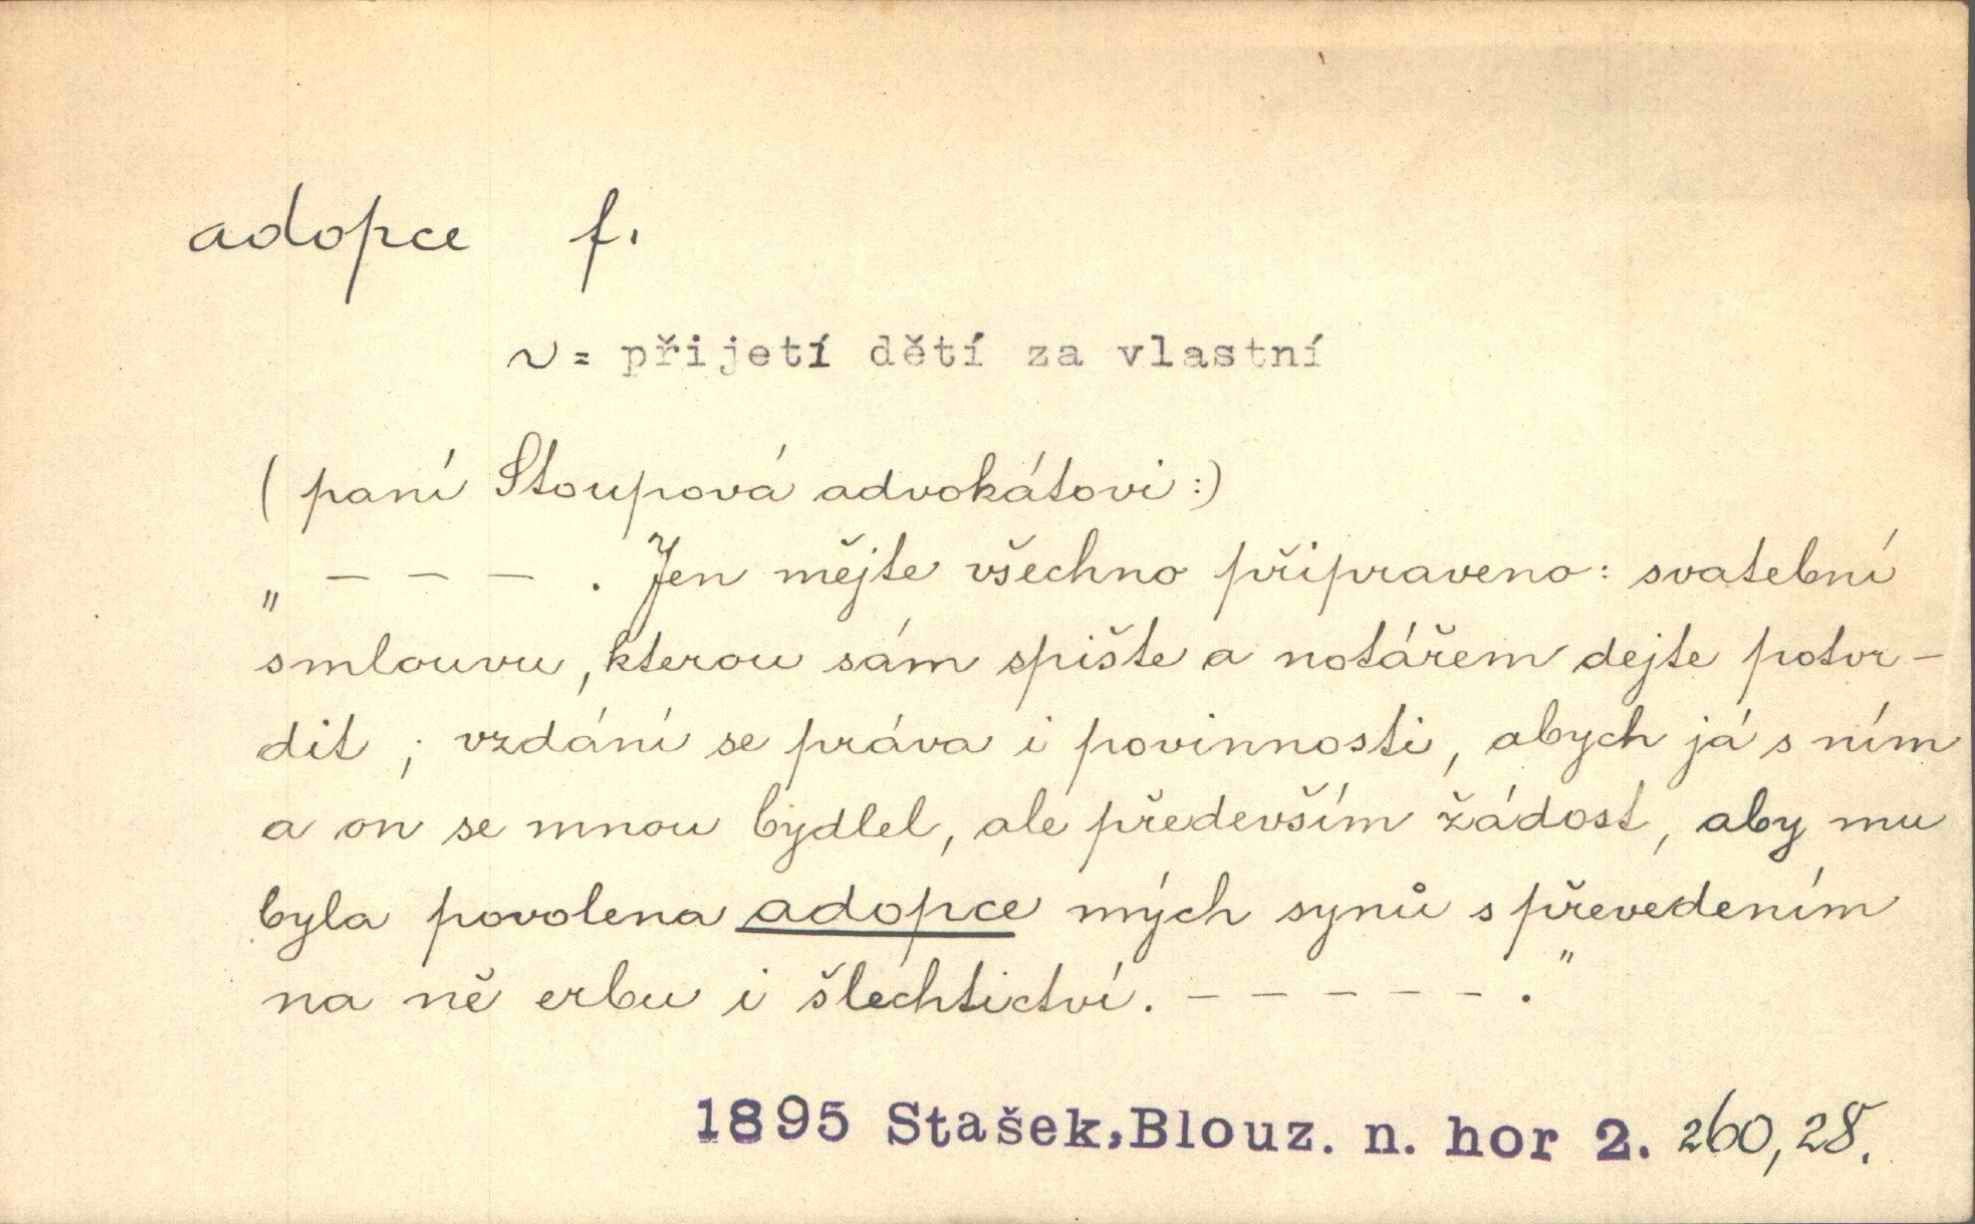 adopce f.
~ = přijetí dětí za vlastní
( paní Stoupová advokátovi :)
„ – – – . Jen mějte všechno připraveno : svatební
smlouvu, kterou sám spište a notářem dejte potvr-
dit ; vzdání se práva i povinnosti, abych já s ním
a on se mnou bydlel, ale především žádost, aby mu
byla povolena adopce mých synů s převedením
na ně erbu i šlechtictví. – – – – – . "
1895 Stašek, Blouz. n. hor 2. 260, 28.